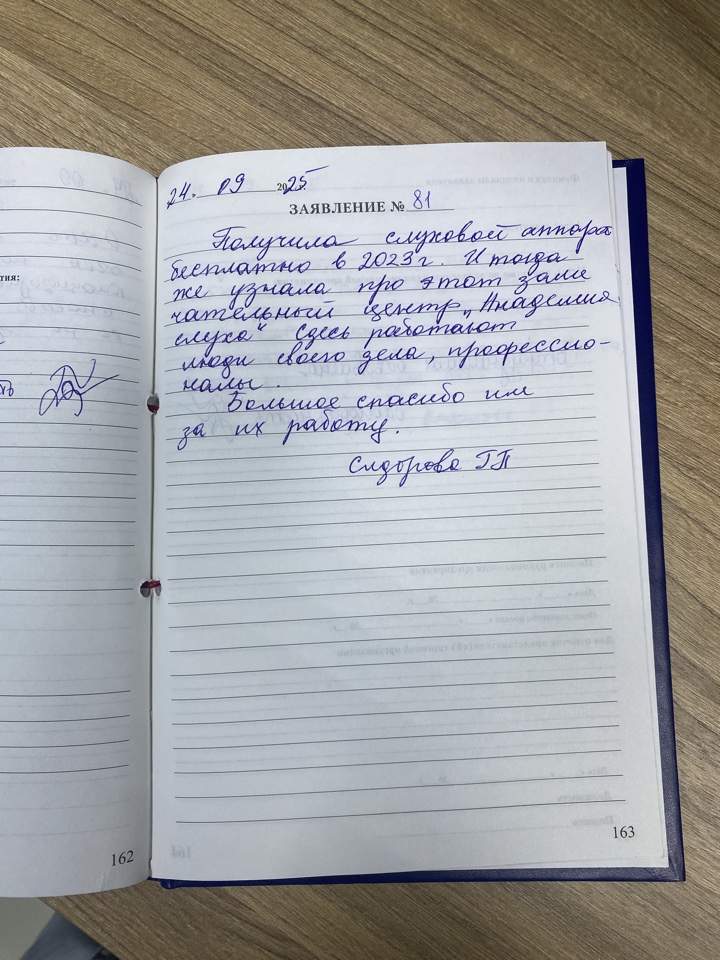 24. 09 2025
ЗАЯВЛЕНИЕ № 81
Получила слуховой аппорат
бесплатно в 2023 г. И тогда
же узнала про этот заме
чательный центр „Академия
слуха" Здесь работают
люди своего дела, профессио-
налы.
Большое спасибо им
за их работу.
Сидорова ГП
163
тия:
162